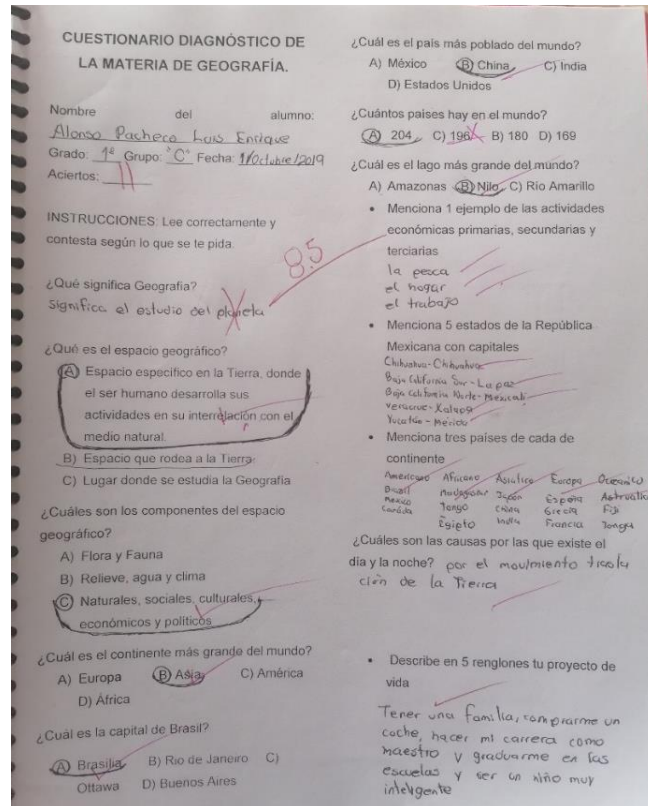 CUESTIONARIO DIAGNÓSTICO DE
LA MATERIA DE GEOGRAFÍA.
Nombre del alumno:
Alonso Pacheco Luis Enrique
Grado: 1º Grupo: "C" Fecha: 1/Octubre/2019
Aciertos: 11
INSTRUCCIONES: Lee correctamente y
contesta según lo que se te pida.
8.5
¿Qué significa Geografía?
Significa el estudio del planeta
¿Qué es el espacio geográfico?
A) Espacio específico en la Tierra, donde
el ser humano desarrolla sus
actividades en su interrelación con el
medio natural.
B) Espacio que rodea a la Tierra.
C) Lugar donde se estudia la Geografía
¿Cuáles son los componentes del espacio
geográfico?
A) Flora y Fauna
B) Relieve, agua y clima
C) Naturales, sociales, culturales,
económicos y políticos
¿Cuál es el continente más grande del mundo?
A) Europa B) Asia C) América
D) África
¿Cuál es la capital de Brasil?
A) Brasilia B) Rio de Janeiro C)
Ottawa D) Buenos Aires
¿Cuál es el país más poblado del mundo?
A) México B) China C) India
D) Estados Unidos
¿Cuántos países hay en el mundo?
A) 204 C) 196 B) 180 D) 169
¿Cuál es el lago más grande del mundo?
A) Amazonas B) Nilo C) Rio Amarillo
• Menciona 1 ejemplo de las actividades
económicas primarias, secundarias y
terciarias
la pesca
el hogar
el trabajo
• Menciona 5 estados de la República
Mexicana con capitales
Chihuahua-Chihuahua
Baja California Sur-La paz
Baja California Norte-Mexicali
Veracruz-Xalapa
Yucatán-Merida
• Menciona tres países de cada de
continente
Americano Africano Asiatico Europa Oceanico
Brasil Madagascar Japón España Astroalia
Mexico Tongo China Grecia Fiji
Canadá Egipto India Francia Tonga
¿Cuáles son las causas por las que existe el
día y la noche? por el movimiento
ción de la Tierra
• Describe en 5 renglones tu proyecto de
vida
Tener una familia, comprarme un
coche, hacer mi carrera como
maestro y graduarme en las
escuelas y ser un niño muy
inteligente